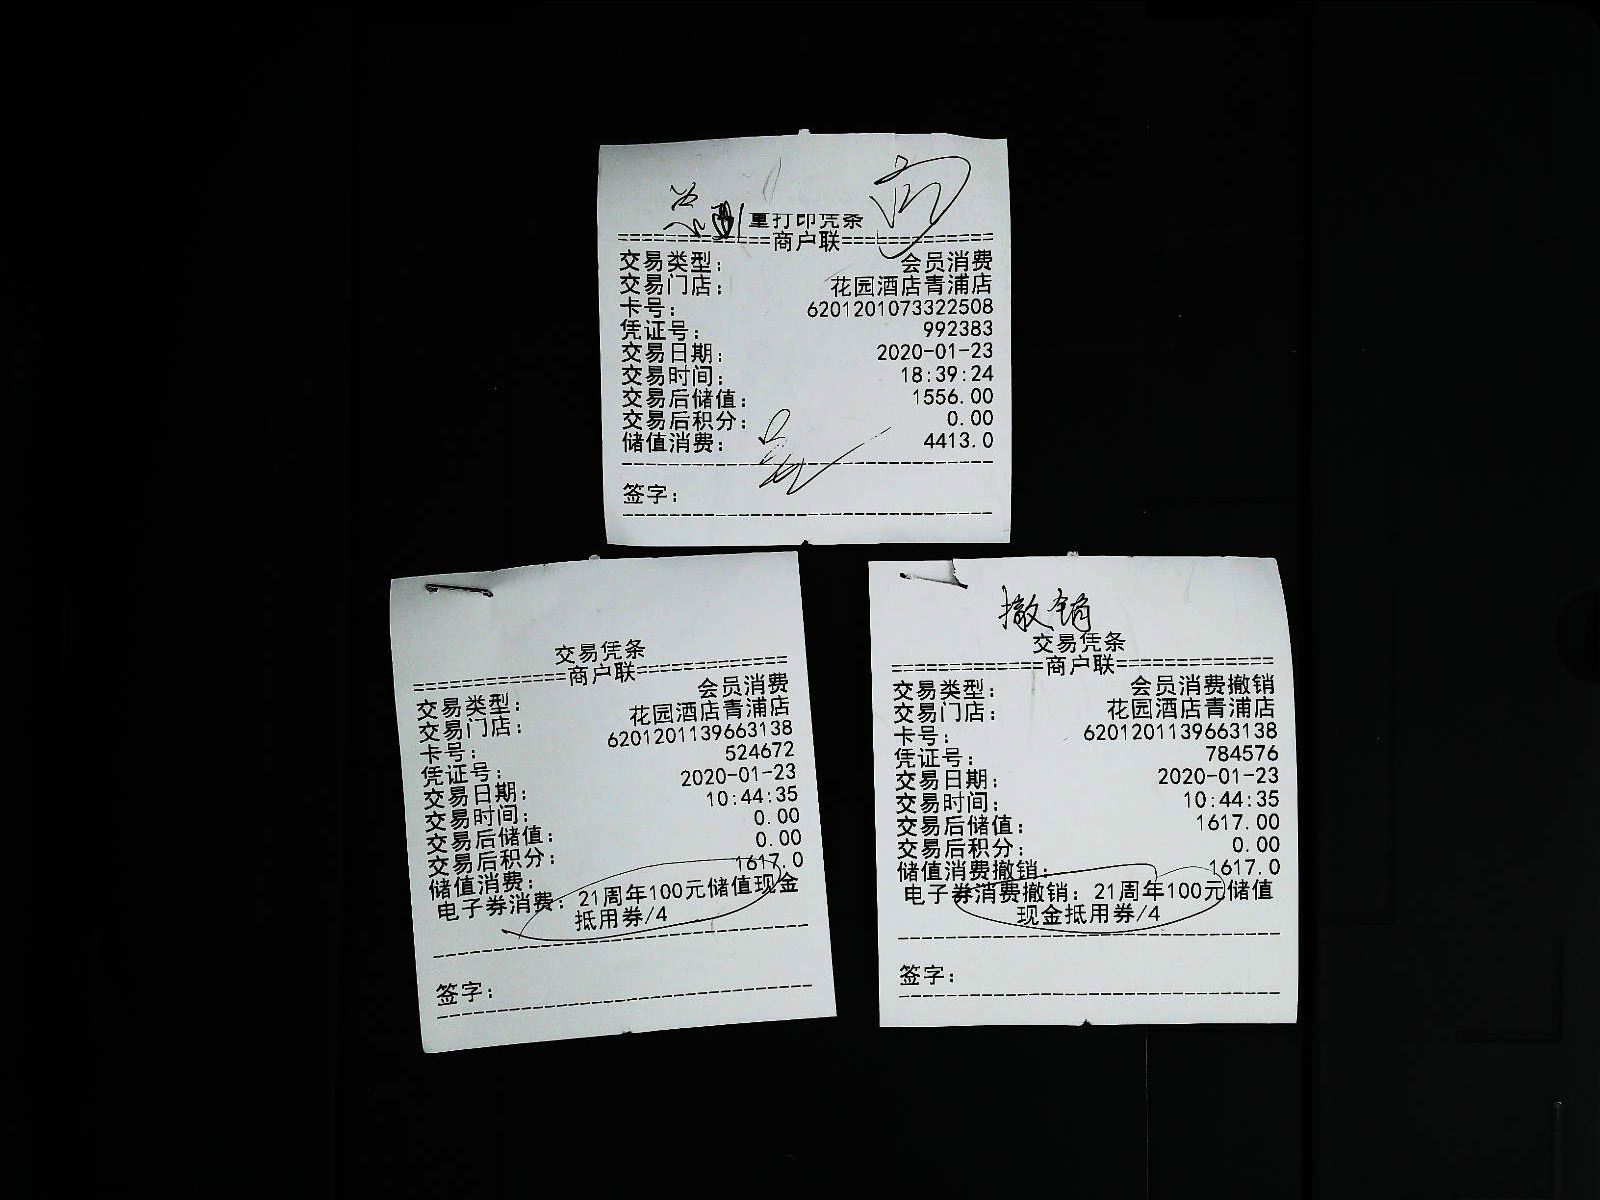 重打印凭条
================商户联================
交易类型： 会员消费
交易门店： 花园酒店青浦店
卡号： 6201201073322508
凭证号： 992383
交易日期： 2020-01-23
交易时间： 18:39:24
交易后储值： 1556.00
交易后积分： 0.00
储值消费： 4413.0
签字：
交易凭条
================商户联================
交易类型： 会员消费
交易门店： 花园酒店青浦店
卡号： 6201201139663138
凭证号： 524672
交易日期： 2020-01-23
交易时间： 10:44:35
交易后储值： 0.00
交易后积分： 0.00
储值消费： 1617.0
电子券消费：21周年100元储值现金
抵用券/4
签字：
撤销
交易凭条
================商户联================
交易类型： 会员消费撤销
交易门店： 花园酒店青浦店
卡号： 6201201139663138
凭证号： 784576
交易日期： 2020-01-23
交易时间： 10:44:35
交易后储值： 1617.00
交易后积分： 0.00
储值消费撤销： 1617.0
电子券消费撤销：21周年100元储值
现金抵用券/4
签字：